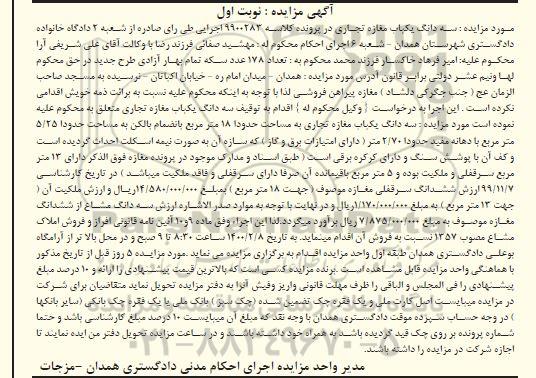 آگهی مزایده : نوبت اول
مورد مزایده : سه دانگ یکباب مغازه تجاری در پرونده کلاسه ۹۹۰۰۲۸۳ اجرایی طی رای صادره از شعبه ۲ دادگاه خانواده
دادگستری شهرستان همدان - شعبه ۶ اجرای احکام محکوم له : مهشید صفائی فرزند رضا با وکالت آقای علی شریفی آرا
محکوم علیه: امیر فرهاد خاکسار فرزند محمد محکوم به : تعداد ۱۷۸ عدد سکه تمام بهار آزادی طرح جدید در حق محکوم
لها ونیم عشر دولتی برابر قانون آدرس مورد مزایده : همدان - میدان امام ره - خیابان اکباتان - نرسیده به مسجد صاحب
الزمان عج ( جنب جگرکی دلشاد ) مغازه پیراهن فروشی لذا با توجه به اینکه محکوم علیه نسبت به برائت ذمه خویش اقدامی
نکرده است . این اجرا به درخواست { وکیل محکوم له } اقدام به توقیف سه دانگ یکباب مغازه تجاری متعلق به محکوم علیه
نموده است مورد مزایده : سه دانگ یکباب مغازه تجاری به مساحت حدودا ۱۸ متر مربع بانضمام بالکن به مساحت حدودا ۵/۲۵
متر مربع با دهانه مفید حدودا ۲/۷۰ متر ( دارای امتیازات برق و گاز ) که سازه آن به صورت نیمه اسکلت احداث گردیده است
و کف آن با پوشش سنگ و دارای کرکره برقی است ( طبق اسناد و مدارک موجود در پرونده مغازه فوق الذکر دارای ۱۳ متر
مربع سرقفلی و ملکیت بوده و ۵ متر مربع باقیمانده آن صرفا دارای سرقفلی و فاقد ملکیت میباشد ) در تاریخ کارشناسی
۹۹/۱۱/۷ ارزش ششدانگ سرقفلی مغازه موصوف ( جهت ۱۸ متر مربع ) بمبلغ ۱۴/۵۸۰/۰۰۰/۰۰۰ریال و ارزش ملکیت آن (
جهت ۱۳ متر مربع ) به مبلغ ۱/۱۷۰/۰۰۰/۰۰۰ریال و در نهایت با توجه به موارد صدر الاشاره ارزش سه دانگ مشاع از ششدانگ
مغازه موصوف به مبلغ ۷/۸۷۵/۰۰۰/۰۰۰ ریال برآورد میگردد.لذا این اجراء وفق ماده ۹و۱۰ آئین نامه قانونی افراز و فروش املاک
مشاع مصوب ۱۳۵۷ نسبت به فروش آن اقدام مینماید. به تاریخ ۱۴۰۰/۲/۸ ساعت ۸:۳۰ تا ۹ صبح و در محل بالا تر از آرامگاه
بوعلی دادگستری همدان طبقه اول واحد مزایده اقدام به برگزاری مزایده می نماید .مورد مزایده ۵ روز قبل از تاریخ مذکور
با هماهنگی واحد مزایده قابل مشاهده است .برنده مزایده کسی است که بالاترین قیمت پیشنهادی را ارائه و ۱۰ درصد مبلغ
پیشنهادی را فی المجلس و الباقی را ظرف مهلت قانونی واریز وفیش آنرا به دفتر مزایده تحویل نماید متقاضیان برای شرکت
در مزایده میبایست اصل کارت ملی و یک فقره چک تضمین شده (چک رمز ) بانک ملی یا یک فقره چک بانکی (سایر بانکها
) در وجه حساب سپرده موقت دادگستری همدان با وجه نقد که مبلغ آن میبایست ۱۰ درصد مبلغ کارشناسی باشد و حتما
شماره پرونده بر روی چک قید گردیده باشد به همراه خود داشته باشند و در ساعت مزایده تحویل دفتر من ایده نمایند تا
اجازه شرکت در مزایده را داشته باشند.
مدیر واحد مزایده اجرای احکام مدنی دادگستری همدان -مزجات